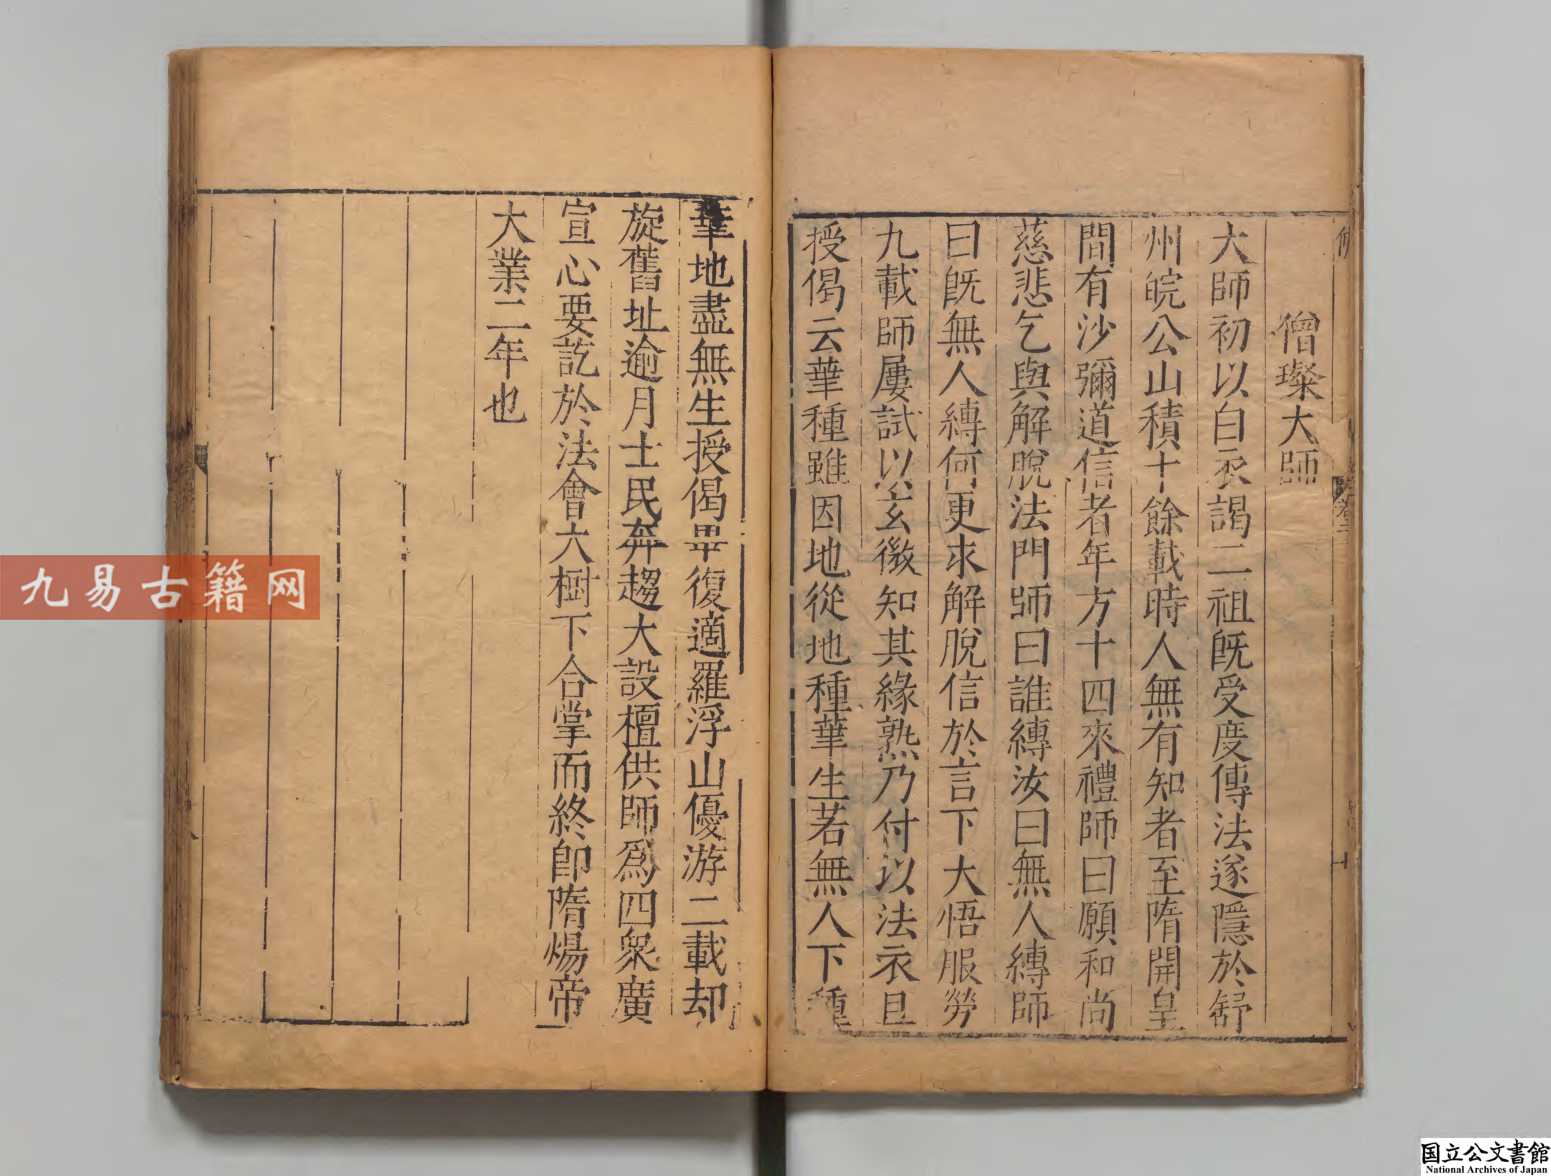 僧璨大師
大師初以白衣謁二祖旣受度傳法遂隱於舒
州皖公山積十餘載時人無有知者至隋開皇
間有沙彌道信者年方十四來禮師曰願和尚
慈悲乞與解脫法門師曰誰縛汝曰無人縛師
曰旣無人縛何更求解脫信於言下大悟服勞
九載師屢試以玄微知其緣熟乃付以法衣且
授偈云華種雖因地從地種華生若無人下種
華地盡無生授偈畢復適羅浮山優游二載却
旋舊址逾月士民奔趨大設檀供師爲四衆廣
宣心要訖於法會大樹下合掌而終卽隋煬帝
大業二年也
九易古籍网
国立公文書館
National Archives of Japan